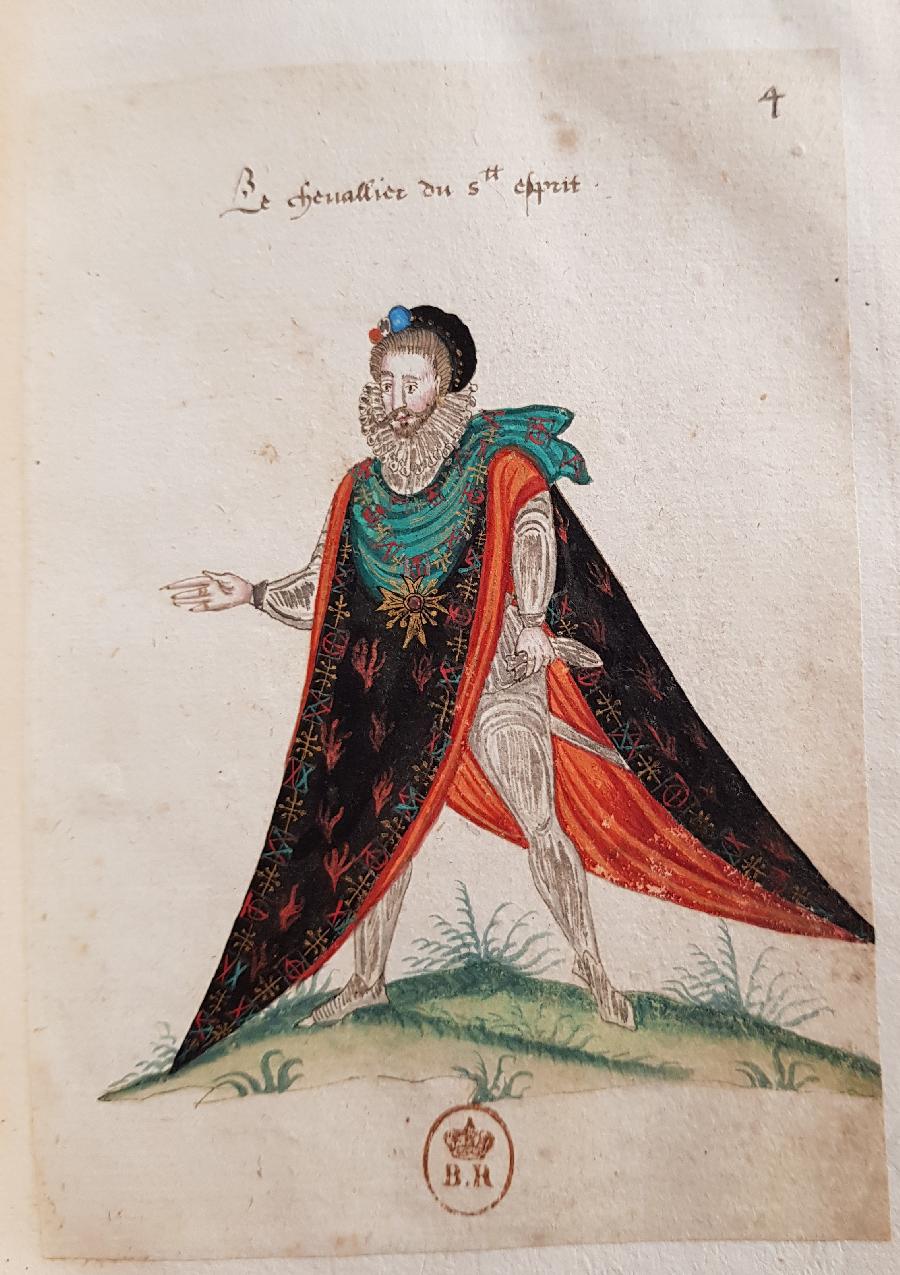 4
Le chevallier du s^tt esprit .
B.R